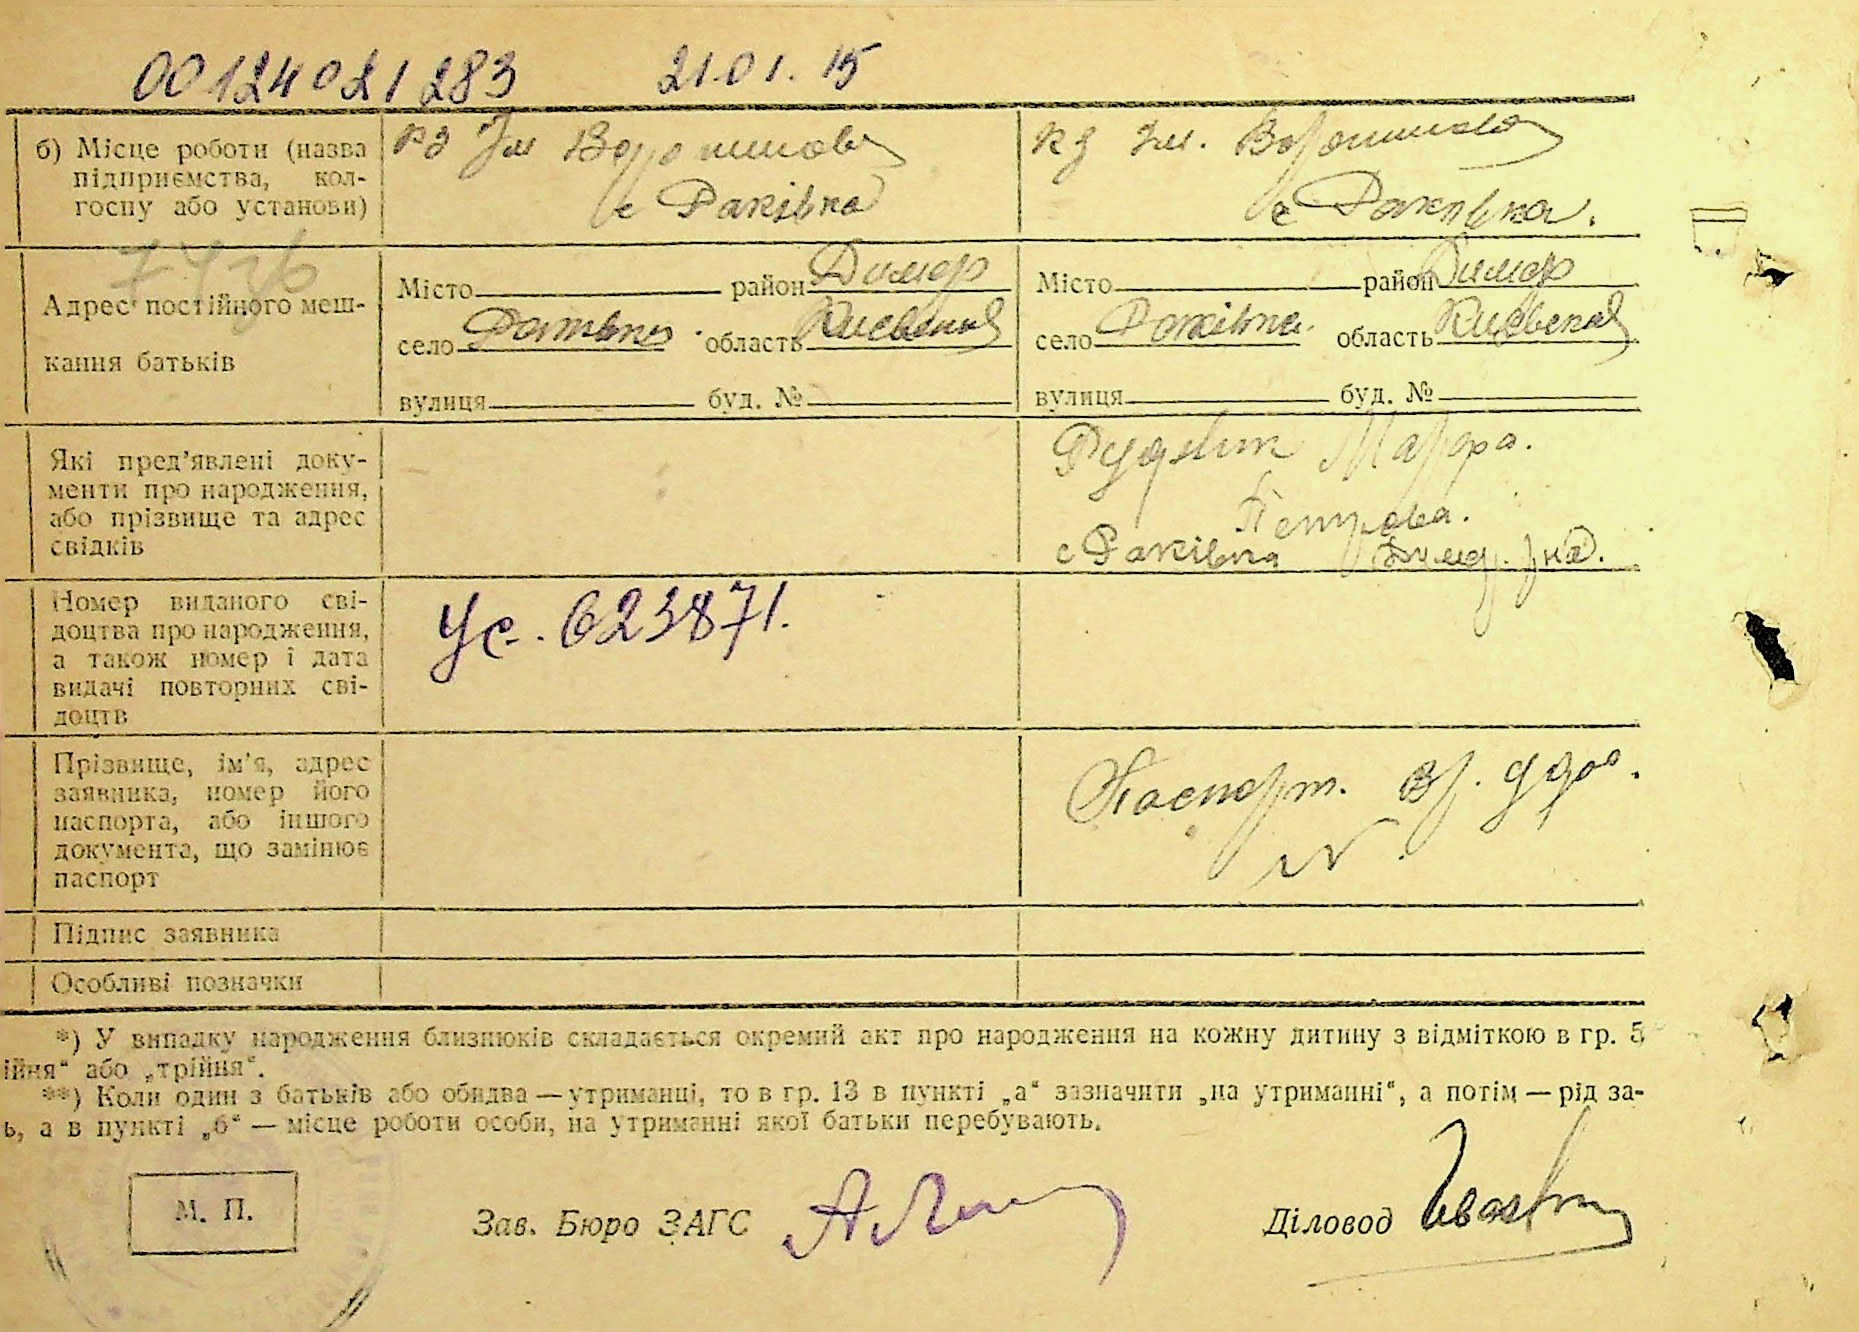 00124021283 21.01.15
б) Місце роботи (назва
підприємства, кол-
госпу або установи)
кз Ім Ворошилова
с Раківка
кз Ім. Ворошилова
с Раківка.
Адрес постійного меш-
кання батьків
Місто район Димер
село Раківка область Киевская
вулиця буд. №
Місто район Димер
село Раківка область Киевская
вулиця буд. №
Які пред'явлені доку-
менти про народження,
або прізвище та адрес
свідків
Рудник Марфа.
Петрова.
с Раківка Димер. рна.
Номер виданого сві-
доцтва про народження,
а також номер і дата
видачі повторних сві-
доцтв
Ус. 623871.
Прізвище, ім'я, адрес
заявника, номер його
паспорта, або іншого
документа, що замінює
паспорт
Паспорт.
№
Підпис заявника
Особливі позначки
*) У випадку народження близнюків складається окремий акт про народження на кожну дитину з відміткою в гр. 5
ійня" або „трійня".
**) Коли один з батьків або обидва — утриманці, то в гр. 13 в пункті „а" зазначити „на утриманні", а потім — рід за-
ь, а в пункті „б" — місце роботи особи, на утриманні якої батьки перебувають.
М. П.
Зав. Бюро ЗАГС
Діловод